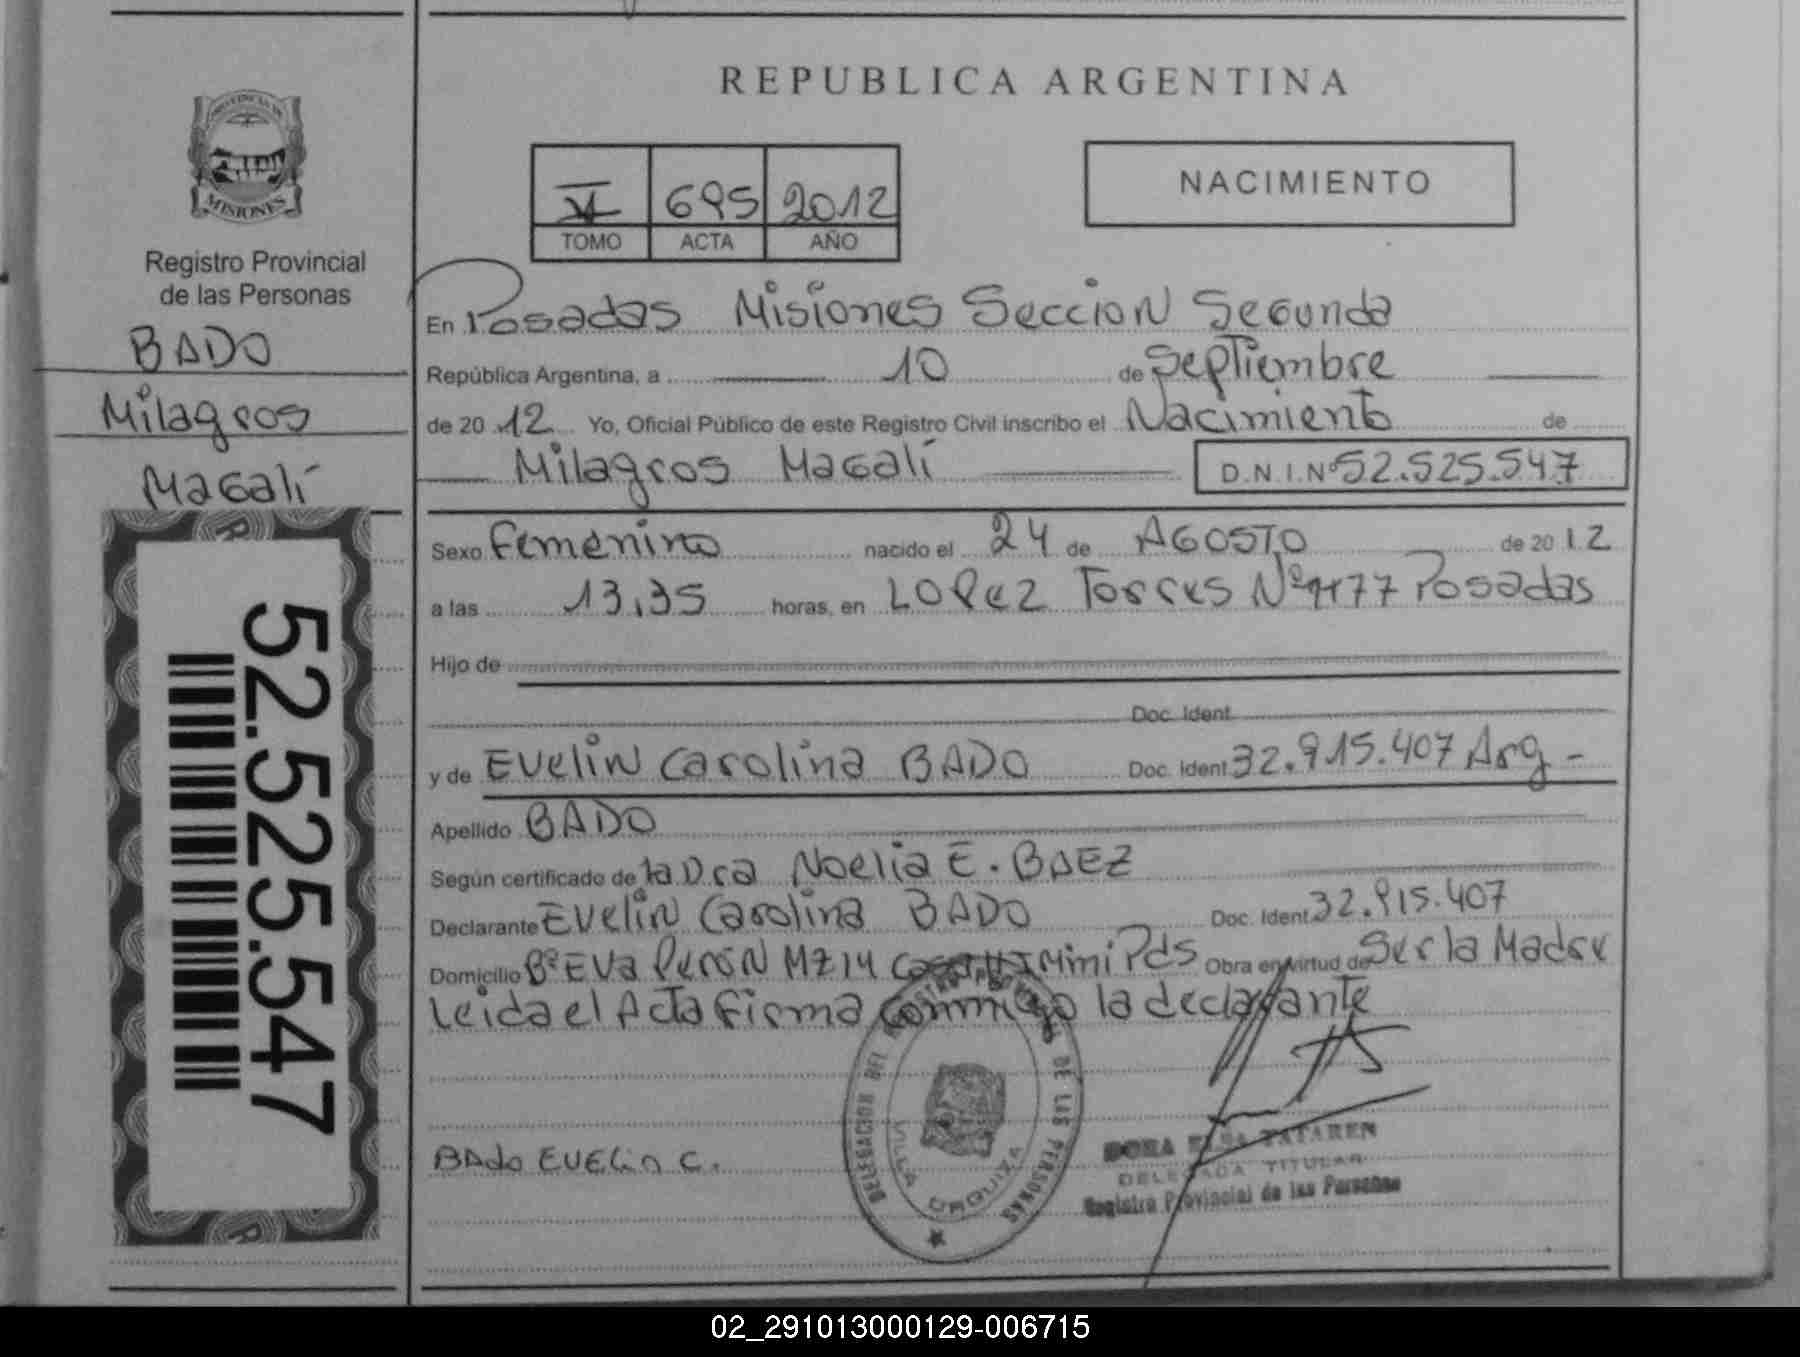 PROVINCIA DE
MISIONES
Registro Provincial
de las Personas
BADO
Milagros
Magalí
52.525.547
REPUBLICA ARGENTINA
VI 695 2012
TOMO ACTA AÑO
NACIMIENTO
En Posadas Misiones Seccion Segunda
República Argentina, a 10 de Septiembre
de 2012 Yo, Oficial Público de este Registro Civil inscribo el Nacimiento de
Milagros Magalí D.N.I.Nº 52.525.547
Sexo Femenino nacido el 24 de AGOSTO de 2012
a las 13,35 horas, en LOPez Torres Nº 1177 Posadas
Hijo de
Doc. Ident.
y de Evelin Carolina BADO Doc. Ident 32.915.407 Arg -
Apellido BADO
Según certificado de la Dra Noelia E. BAEZ
Declarante Evelin Carolina BADO Doc. Ident 32.915.407
Domicilio Bº Eva Perón MZ 14 Mini Pds Obra en virtud de Ser la Madre
Leida el Acta Firma conmigo la declarante
BAdo EVELin C.
DELEGACION DEL REGISTRO PROVINCIAL DE LAS PERSONAS
VILLA URQUIZA
DORA ELSA TATAREN
DELEGADA TITULAR
Registro Provincial de las Personas
02_291013000129-006715